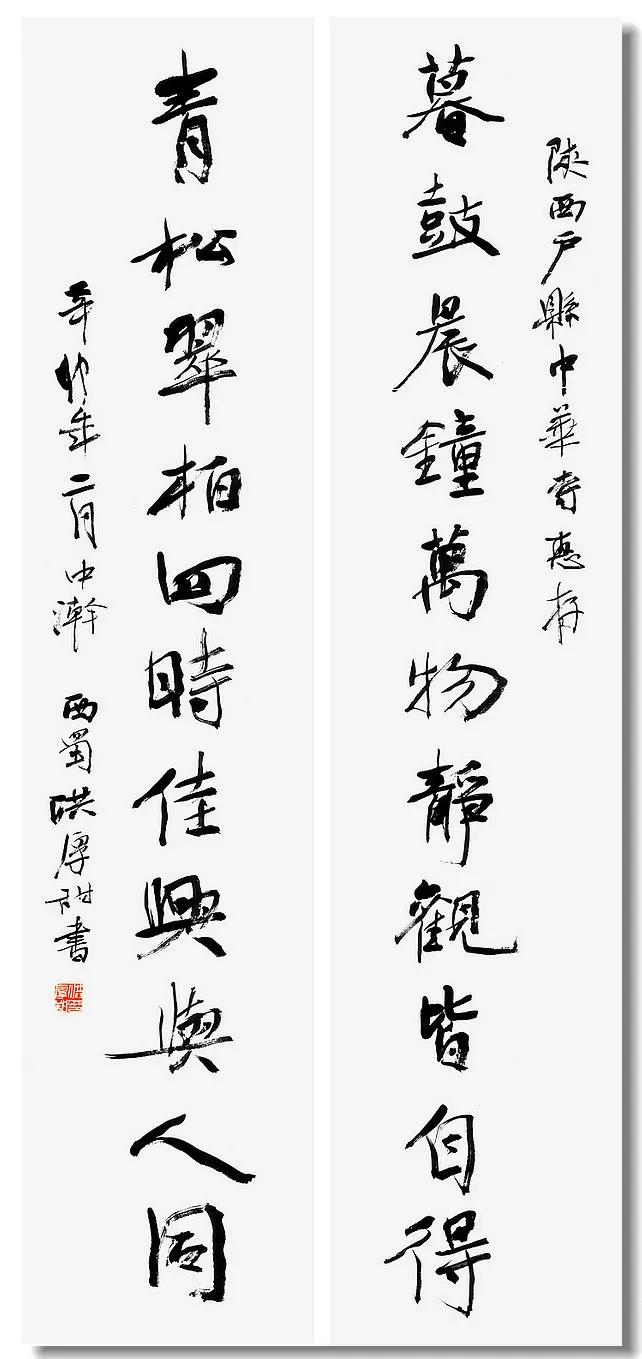 陝西戶縣中華寺惠存
暮鼓晨鐘萬物靜觀皆自得
青松翠柏四時佳興與人同
辛卯年二月中澣
西蜀洪厚甜書